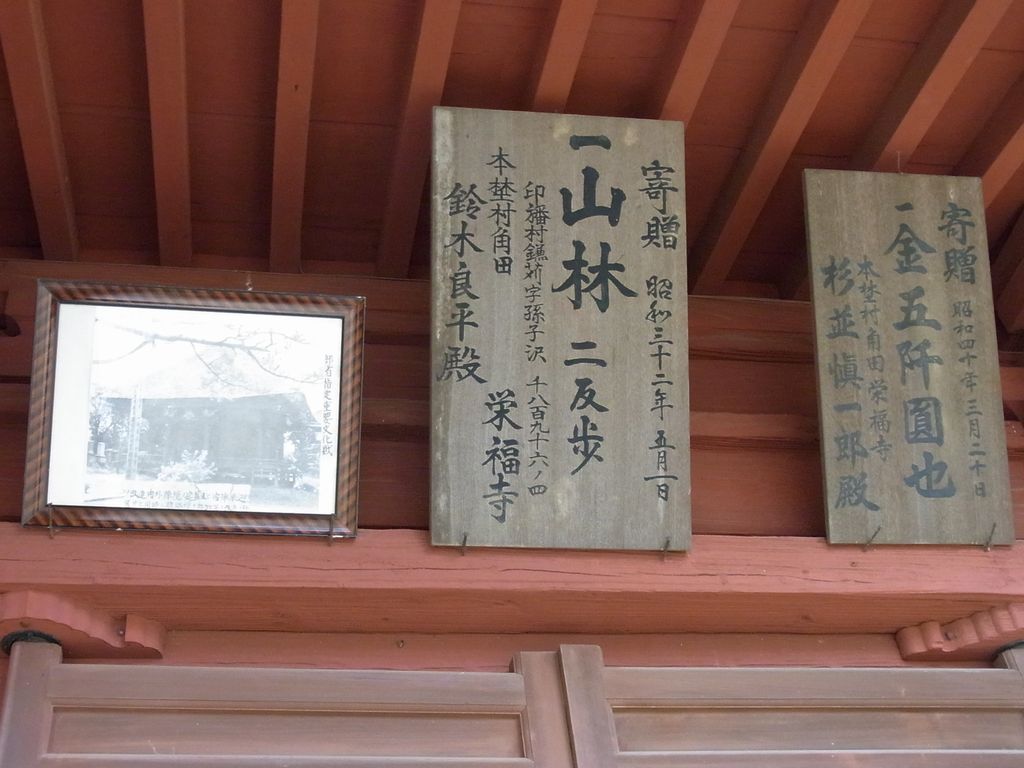 寄贈 昭和四十年三月二十日
一金五阡圓也
本埜村角田栄福寺
杉並愼一郎殿
寄贈 昭和三十二年五月一日
一山林二反歩
印旛村鎌苅字孫子沢 千八百九十六ノ四
本埜村角田 栄福寺
鈴木良平殿
指定重要文化財